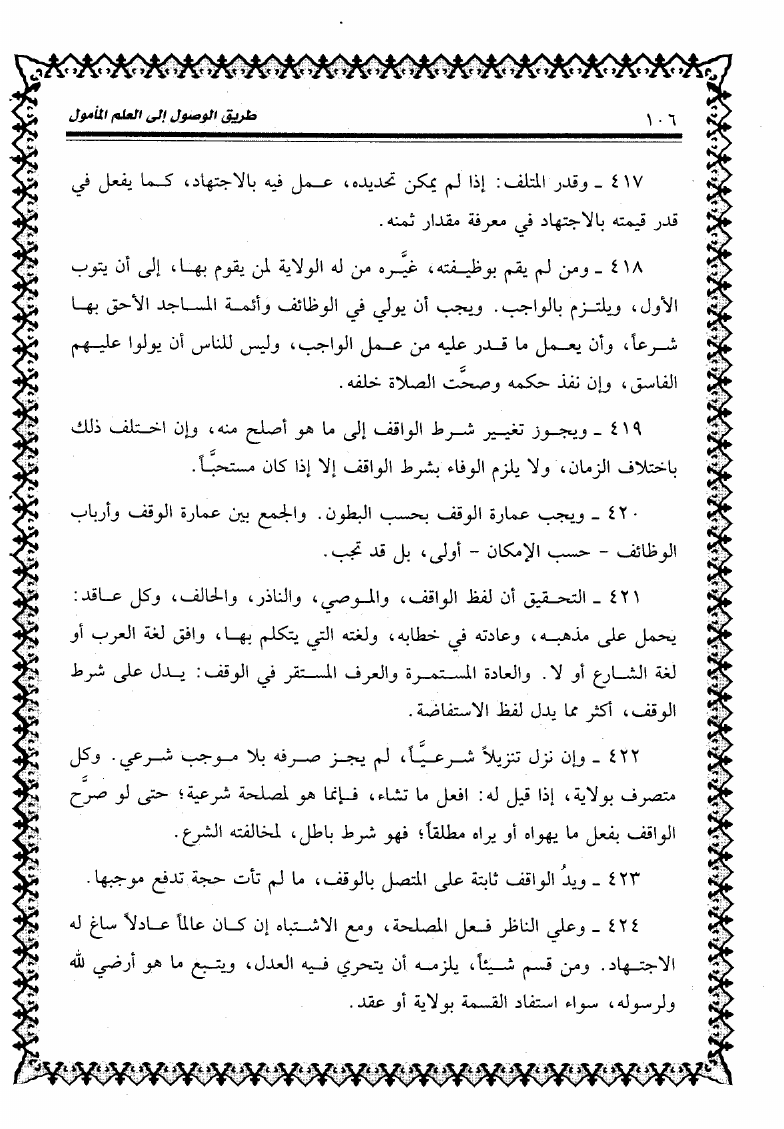 ١٠٦ طريق الوصول إلى العلم المأمول
٤١٧ ـ وقدر المتلف: إذا لم يمكن تحديده، عمل فيه بالاجتهاد، كما يفعل في
قدر قيمته بالاجتهاد في معرفة مقدار ثمنه.
٤١٨ ـ ومن لم يقم بوظيفته، غيَّره من له الولاية لمن يقوم بها، إلى أن يتوب
الأول، ويلتزم بالواجب. ويجب أن يولي في الوظائف وأئمة المساجد الأحق بها
شرعاً، وأن يعمل ما قدر عليه من عمل الواجب، وليس للناس أن يولوا عليهم
الفاسق، وإن نفذ حكمه وصحَّت الصلاة خلفه.
٤١٩ ـ ويجوز تغيير شرط الواقف إلى ما هو أصلح منه، وإن اختلف ذلك
باختلاف الزمان، ولا يلزم الوفاء بشرط الواقف إلا إذا كان مستحبَّاً.
٤٢٠ ـ ويجب عمارة الوقف بحسب البطون. والجمع بين عمارة الوقف وأرباب
الوظائف - حسب الإمكان - أولى، بل قد تجب.
٤٢١ ـ التحقيق أن لفظ الواقف، والموصي، والناذر، والحالف، وكل عاقد:
يحمل على مذهبه، وعادته في خطابه، ولغته التي يتكلم بها، وافق لغة العرب أو
لغة الشارع أو لا. والعادة المستمرة والعرف المستقر في الوقف: يدل على شرط
الوقف، أكثر مما يدل لفظ الاستفاضة.
٤٢٢ ـ وإن نزل تنزيلاً شرعيَّاً، لم يجز صرفه بلا موجب شرعي. وكل
متصرف بولاية، إذا قيل له: افعل ما تشاء، فإنما هو لمصلحة شرعية؛ حتى لو صرَّح
الواقف بفعل ما يهواه أو يراه مطلقاً؛ فهو شرط باطل، لمخالفته الشرع.
٤٢٣ ـ ويدُ الواقف ثابتة على المتصل بالوقف، ما لم تأت حجة تدفع موجبها.
٤٢٤ ـ وعلي الناظر فعل المصلحة، ومع الاشتباه إن كان عالماً عادلاً ساغ له
الاجتهاد. ومن قسم شيئاً، يلزمه أن يتحري فيه العدل، ويتبع ما هو أرضي لله
ولرسوله، سواء استفاد القسمة بولاية أو عقد.